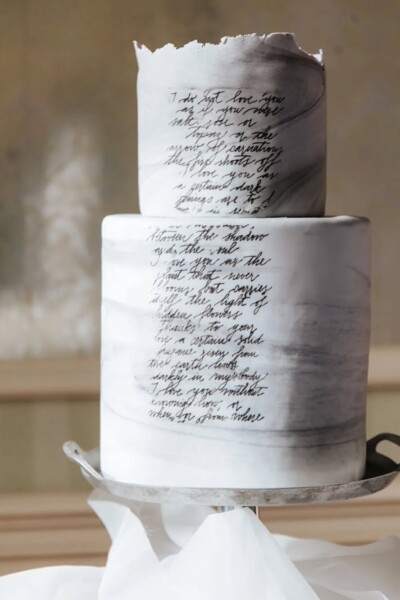 I do not love you
as if you were
salt rose or
topaz or the
arrow of carnations
the fire shoots off
I love you as
a certain dark
things are to
in secret
between the shadow
and the soul
I love you as the
plant that never
blooms but carries
itself the light of
hidden flowers
thanks to your
love a certain solid
fragrance risen from
the earth lives
darkly in my body
I love you without
knowing how or
when or from where